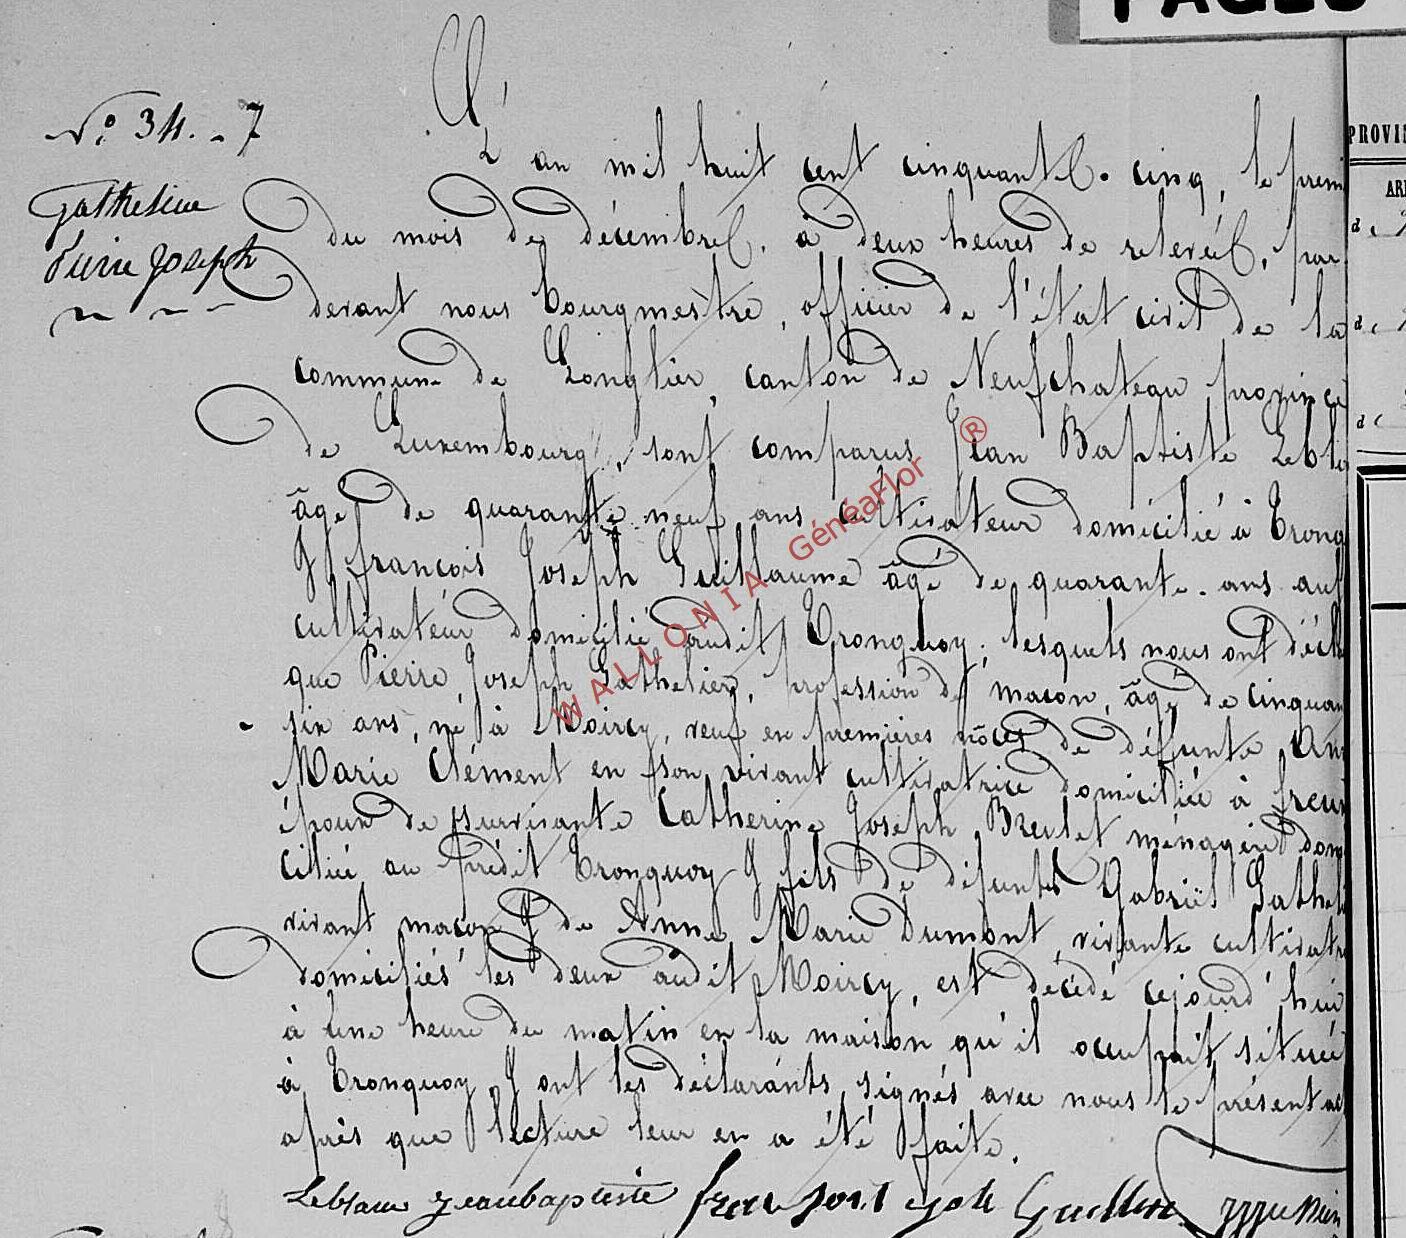 PAGES
PROVIN
N° 34. - 7
Gathelier
Pierre Joseph
L'an mil huit cent cinquante-cinq, le prem
du mois de décembre, à deux heures de relevée, par
devant nous bourgmestre, officier de l'état civil de la
commune de Longlier, canton de Neufchateau province
de Luxembourg, sont comparus Jean Baptiste Lebla
âgé de quarante neuf ans cultivateur domicilié à Tronq
& françois Joseph Guillaume âgé de quarante-ans au
cultivateur domicilié audit Tronquoy; lesquels nous ont décla
que Pierre Joseph Gathelier, profession de maçon, âgé de cinquan
six ans, né à Moircy, veuf en premières nôces de défunte An
Marie Clément en son vivant cultivatrice domiciliée à freu
époux de survivante Catherine Joseph Breulet ménagère dom
ciliée au prédit Tronquoy & fils de défunts Gabriël Gathel
vivant maçon & de Anne Marie Dumont vivante cultivatr
domiciliés les deux audit Moircy, est décédé cejourd'hui
à une heure du matin en la maison qu'il occupait située
à Tronquoy & ont les déclarants signés avec nous le présent ac
après que lecture leur en a été faite.
Leblanc Jeanbaptiste
WALLONIA GénéaFlor ®